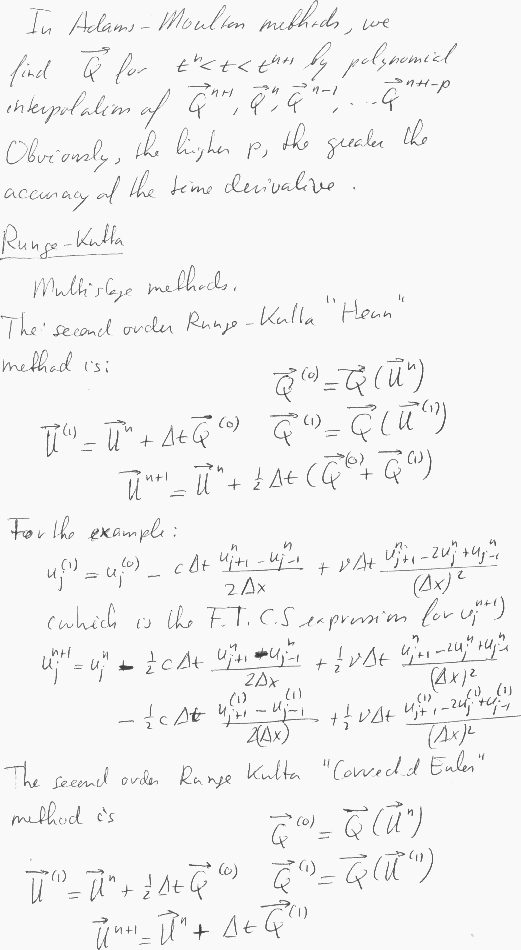 In Adams-Moulton methods, we
find $\vec{Q}$ for $t^n < t < t^{n+1}$ by polynomial
interpolation of $\vec{Q}^{n+1}, \vec{Q}^n, \vec{Q}^{n-1}, \ldots \vec{Q}^{n+1-p}$
Obviously, the higher p, the greater the
accuracy of the time derivative.
Runge-Kutta
Multistage methods.
The second order Runge-Kutta "Heun"
method is:
$\vec{Q}^{(0)} = \vec{Q}(\vec{U}^n)$
$\vec{U}^{(1)} = \vec{U}^n + \Delta t \vec{Q}^{(0)} \quad \vec{Q}^{(1)} = \vec{Q}(\vec{U}^{(1)})$
$\vec{U}^{n+1} = \vec{U}^n + \frac{1}{2} \Delta t (\vec{Q}^{(0)} + \vec{Q}^{(1)})$
For the example:
$u_j^{(1)} = u_j^{(0)} - c\Delta t \frac{u_{j+1}^n - u_{j-1}^n}{2\Delta x} + \nu \Delta t \frac{u_{j+1}^n - 2u_j^n + u_{j-1}^n}{(\Delta x)^2}$
(which is the F.T.C.S expression for $u_j^{n+1}$)
$u_j^{n+1} = u_j^n - \frac{1}{2} c \Delta t \frac{u_{j+1}^n - u_{j-1}^n}{2\Delta x} + \frac{1}{2} \nu \Delta t \frac{u_{j+1}^n - 2u_j^n + u_{j-1}^n}{(\Delta x)^2}$
$- \frac{1}{2} c \Delta t \frac{u_{j+1}^{(1)} - u_{j-1}^{(1)}}{2(\Delta x)} + \frac{1}{2} \nu \Delta t \frac{u_{j+1}^{(1)} - 2u_j^{(1)} + u_{j-1}^{(1)}}{(\Delta x)^2}$
The second order Runge Kutta "Corrected Euler"
method is
$\vec{Q}^{(0)} = \vec{Q}(\vec{U}^n)$
$\vec{U}^{(1)} = \vec{U}^n + \frac{1}{2} \Delta t \vec{Q}^{(0)} \quad \vec{Q}^{(1)} = \vec{Q}(\vec{U}^{(1)})$
$\vec{U}^{n+1} = \vec{U}^n + \Delta t \vec{Q}^{(1)}$